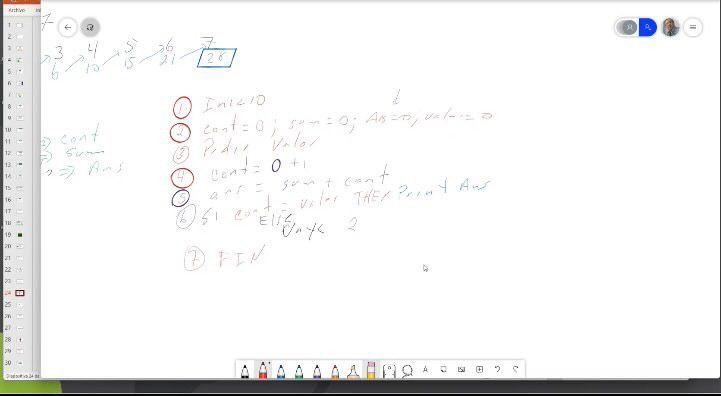 Archivo
7
3 4 5 6 7
6 10 15 21 28
① Inicio
② cont = 0; sum = 0; Ans = 0, valor = 0
③ Pedir Valor
④ cont = 0 + 1
⑤ ans = sum + cont
⑥ Si cont = valor THEN Print Ans
Else
Vaya 2
⑦ FIN
cont
sum
⇒ Ans